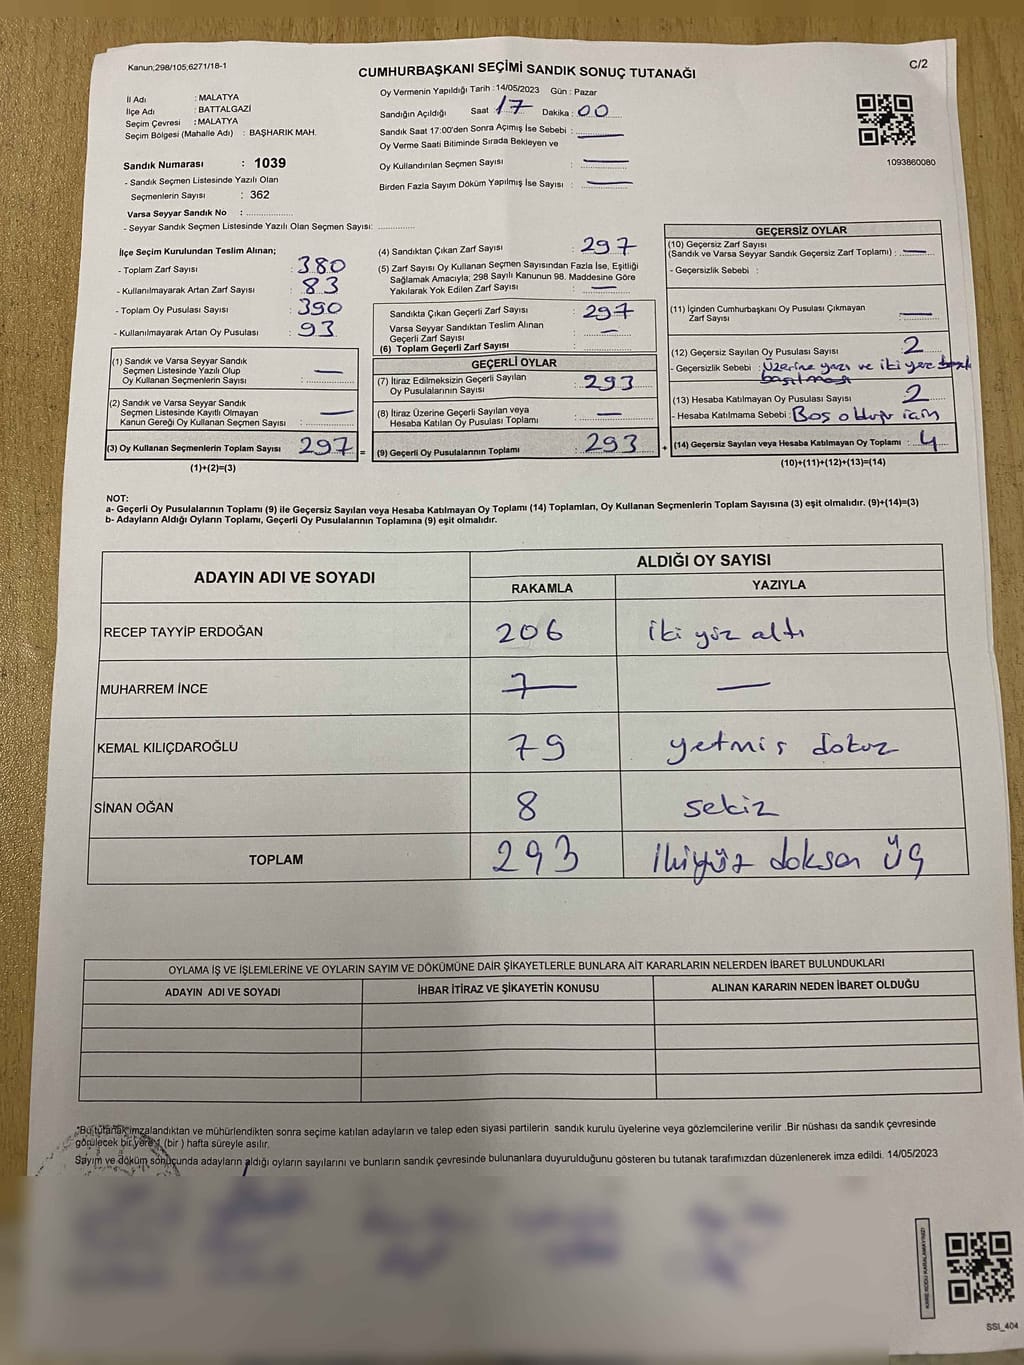 Kanun;298/105,6271/18-1
CUMHURBAŞKANI SEÇİMİ SANDIK SONUÇ TUTANAĞI
C/2
İl Adı : MALATYA
İlçe Adı : BATTALGAZİ
Seçim Çevresi : MALATYA
Seçim Bölgesi (Mahalle Adı) : BAŞHARIK MAH.
Oy Vermenin Yapıldığı Tarih : 14/05/2023 Gün : Pazar
Sandığın Açıldığı Saat 17 Dakika : 00
Sandık Saat 17:00'den Sonra Açımış İse Sebebi : —
Oy Verme Saati Bitiminde Sırada Bekleyen ve
Oy Kullandırılan Seçmen Sayısı : —
Birden Fazla Sayım Döküm Yapılmış İse Sayısı : —
1093860080
Sandık Numarası : 1039
- Sandık Seçmen Listesinde Yazılı Olan
Seçmenlerin Sayısı : 362
Varsa Seyyar Sandık No : ..................
- Seyyar Sandık Seçmen Listesinde Yazılı Olan Seçmen Sayısı: ..............
İlçe Seçim Kurulundan Teslim Alınan;
- Toplam Zarf Sayısı : 380
- Kullanılmayarak Artan Zarf Sayısı : 83
- Toplam Oy Pusulası Sayısı : 390
- Kullanılmayarak Artan Oy Pusulası : 93
(1) Sandık ve Varsa Seyyar Sandık
Seçmen Listesinde Yazılı Olup
Oy Kullanan Seçmenlerin Sayısı : —
(2) Sandık ve Varsa Seyyar Sandık
Seçmen Listesinde Kayıtlı Olmayan
Kanun Gereği Oy Kullanan Seçmen Sayısı : —
(3) Oy Kullanan Seçmenlerin Toplam Sayısı : 297 =
(1)+(2)=(3)
(4) Sandıktan Çıkan Zarf Sayısı : 297
(5) Zarf Sayısı Oy Kullanan Seçmen Sayısından Fazla İse, Eşitliği
Sağlamak Amacıyla; 298 Sayılı Kanunun 98. Maddesine Göre
Yakılarak Yok Edilen Zarf Sayısı : —
Sandıkta Çıkan Geçerli Zarf Sayısı : 297
Varsa Seyyar Sandıktan Teslim Alınan
Geçerli Zarf Sayısı : —
(6) Toplam Geçerli Zarf Sayısı :
GEÇERLİ OYLAR
(7) İtiraz Edilmeksizin Geçerli Sayılan
Oy Pusulalarının Sayısı : 293
(8) İtiraz Üzerine Geçerli Sayılan veya
Hesaba Katılan Oy Pusulası Toplamı : —
(9) Geçerli Oy Pusulalarının Toplamı : 293 +
GEÇERSİZ OYLAR
(10) Geçersiz Zarf Sayısı
(Sandık ve Varsa Seyyar Sandık Geçersiz Zarf Toplamı) : —
- Geçersizlik Sebebi :
(11) İçinden Cumhurbaşkanı Oy Pusulası Çıkmayan
Zarf Sayısı : —
(12) Geçersiz Sayılan Oy Pusulası Sayısı : 2
- Geçersizlik Sebebi : Üzerine yazı ve iki yere
basılması
(13) Hesaba Katılmayan Oy Pusulası Sayısı : 2
- Hesaba Katılmama Sebebi : Boş olduğu için
(14) Geçersiz Sayılan veya Hesaba Katılmayan Oy Toplamı : 4
(10)+(11)+(12)+(13)=(14)
NOT:
a- Geçerli Oy Pusulalarının Toplamı (9) ile Geçersiz Sayılan veya Hesaba Katılmayan Oy Toplamı (14) Toplamları, Oy Kullanan Seçmenlerin Toplam Sayısına (3) eşit olmalıdır. (9)+(14)=(3)
b- Adayların Aldığı Oyların Toplamı, Geçerli Oy Pusulalarının Toplamına (9) eşit olmalıdır.
ADAYIN ADI VE SOYADI
ALDIĞI OY SAYISI
RAKAMLA YAZIYLA
RECEP TAYYİP ERDOĞAN 206 iki yüz altı
MUHARREM İNCE 7 —
KEMAL KILIÇDAROĞLU 79 yetmiş dokuz
SİNAN OĞAN 8 sekiz
TOPLAM 293 ikiyüz doksan üç
OYLAMA İŞ VE İŞLEMLERİNE VE OYLARIN SAYIM VE DÖKÜMÜNE DAİR ŞİKAYETLERLE BUNLARA AİT KARARLARIN NELERDEN İBARET BULUNDUKLARI
ADAYIN ADI VE SOYADI İHBAR İTİRAZ VE ŞİKAYETİN KONUSU ALINAN KARARIN NEDEN İBARET OLDUĞU
*Bu tutanak imzalandıktan ve mühürlendikten sonra seçime katılan adayların ve talep eden siyasi partilerin sandık kurulu üyelerine veya gözlemcilerine verilir .Bir nüshası da sandık çevresinde
görülecek bir yere 1 (bir ) hafta süreyle asılır.
Sayım ve döküm sonucunda adayların aldığı oyların sayılarını ve bunların sandık çevresinde bulunanlara duyurulduğunu gösteren bu tutanak tarafımızdan düzenlenerek imza edildi. 14/05/2023
KARE KODU KARALAMAYINIZ!
SSI_404